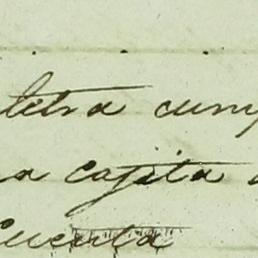 letra cump
a cajita
Cuenta